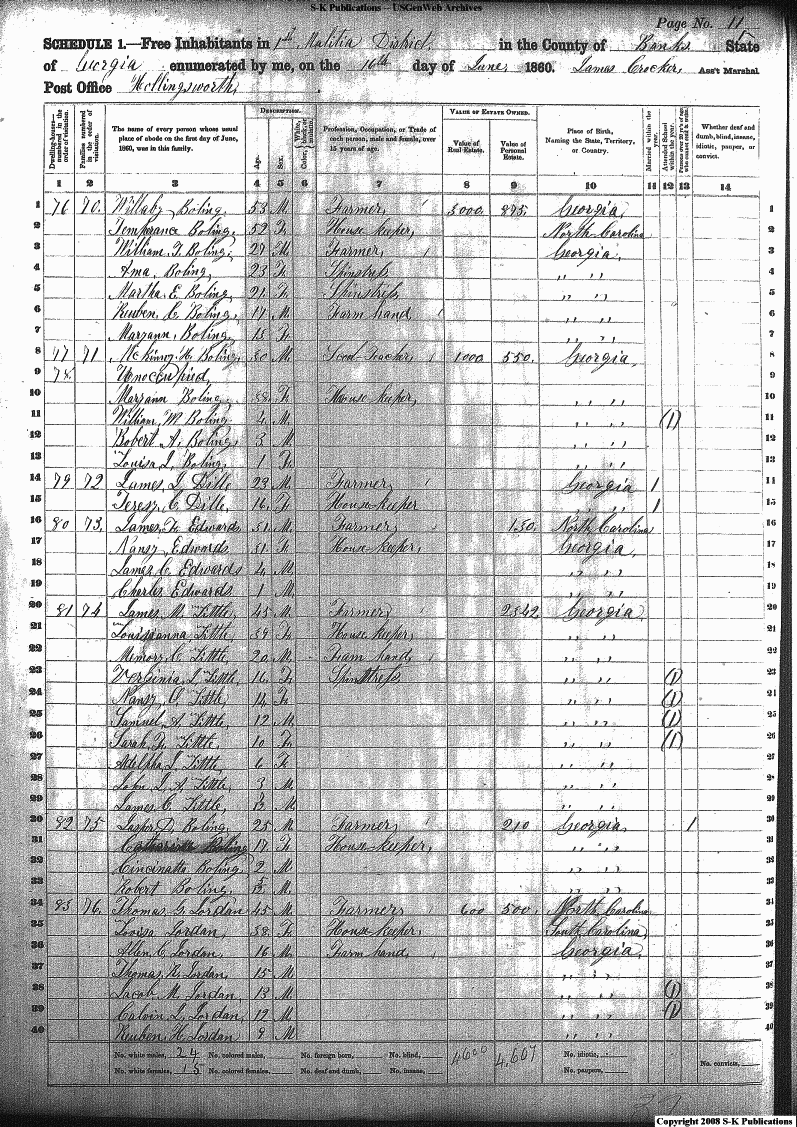 S-K Publications -- USGenWeb Archives
Page No. 11
SCHEDULE 1.—Free Inhabitants in 1st Malitia District in the County of Banks State
of Georgia enumerated by me, on the 16th day of June 1860. James Crocker, Ass't Marshal
Post Office Hollingsworth
Dwelling-houses—numbered in the order of visitation.
Families numbered in the order of visitation.
The name of every person whose usual place of abode on the first day of June, 1860, was in this family.
DESCRIPTION.
Age.
Sex.
Color, White, black, or mulatto.
Profession, Occupation, or Trade of each person, male and female, over 15 years of age.
VALUE OF ESTATE OWNED.
Value of Real Estate.
Value of Personal Estate.
Place of Birth, Naming the State, Territory, or Country.
Married within the year.
Attended School within the year.
Persons over 20 y'rs of age who cannot read & write.
Whether deaf and dumb, blind, insane, idiotic, pauper, or convict.
1 2 3 4 5 6 7 8 9 10 11 12 13 14
1 76 70 Boling 53 M Farmer 3000 895 Georgia 1
2 Temperance Boling 52 F House keeper North Carolina 2
3 William T. Boling 27 M Farmer Georgia 3
4 Ama Boling 23 F Spinstress " " 4
5 Martha E Boling 21 F Spinstress " " 5
6 Reuben C Boling 17 M Farm hand " " 6
7 Maryann Boling 15 F " " 7
8 77 71 Boling 30 M Teacher 1000 550 Georgia 8
9 78 Unoccupied 9
10 Maryann Boling 38 F House keeper " " 10
11 William W Boling 4 M " " (1) 11
12 Robert A. Boling 3 M " " 12
13 Louisa J. Boling 1 F " " 13
14 79 72 James J Dille 23 M Farmer Georgia 1 14
15 C Dille 16 F House keeper " " 1 15
16 80 73 James F. Edwards 31 M Farmer 150 North Carolina 16
17 Nansy Edwards 31 F House keeper Georgia 17
18 James C Edwards 4 M " " 18
19 Charles Edwards 1 M " " 19
20 81 74 James M Little 45 M Farmer 2342 Georgia 20
21 Louisanna Little 39 F House keeper " " 21
22 Memory C Little 20 M Farm hand " " 22
23 Versinia J Little 16 F Spinstress " " (1) 23
24 Nansy O. Little 14 F " " (1) 24
25 Samuel A. Little 12 M " " (1) 25
26 Sarah F. Little 10 F " " (1) 26
27 Little 6 F " " 27
28 John L. A Little 3 M " " 28
29 James C Little M " " 29
30 82 75 Jasper D. Boling 25 M Farmer 210 Georgia 1 30
31 Catharine Boling 17 F House keeper " " 31
32 Cincinatta Boling 2 M " " 32
33 Robert Boling M " " 33
34 83 76 Thomas G. Jordan 45 M Farmer 600 500 North Carolina 34
35 Jordan 38 F House keeper South Carolina 35
36 Allen C Jordan 16 M Farm hand Georgia 36
37 Thomas N. Jordan 15 M " " 37
38 Jacob M Jordan 13 M " " (1) 38
39 Calvin L Jordan 12 M " " (1) 39
40 Reuben H Jordan 9 M " " 40
No. white males, 24 No. colored males, No. foreign born, No. blind, 4600 4,607 No. idiotic,
No. white females, 15 No. colored females, No. deaf and dumb, No. insane, No. paupers, No. convicts,
Copyright 2008 S-K Publications